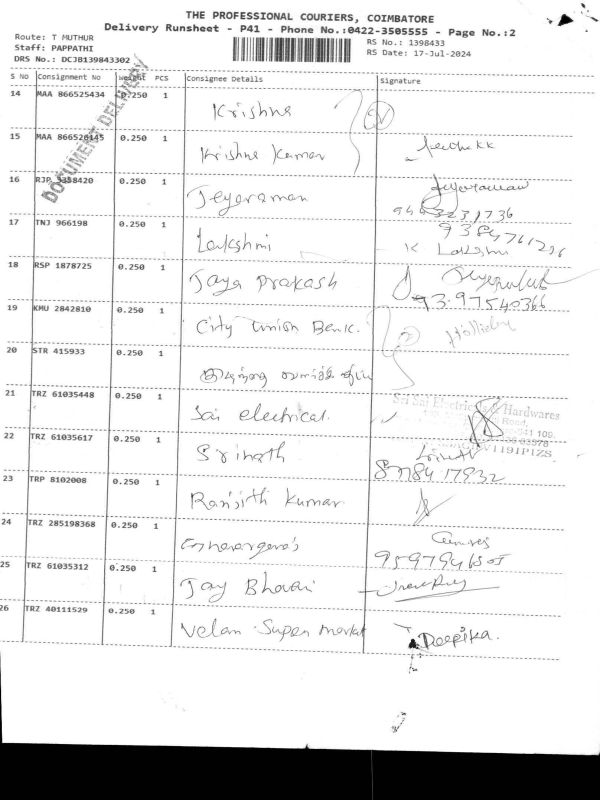 THE PROFESSIONAL COURIERS, COIMBATORE
Delivery Runsheet - P41 - Phone No.:0422-3505555 - Page No.:2
Route: T MUTHUR
Staff: PAPPATHI
DRS No.: DCJB139843302
RS No.: 1398433
RS Date: 17-Jul-2024
DOCUMENT DELIVERY
S No Consignment No Weight PCS Consignee Details Signature
14 MAA 866525434 0.250 1 Krishna
15 MAA 866526145 0.250 1 Krishna Kumar
16 RJP 5358420 0.250 1 Jeyaraman Jeyaraman
9443231736
17 TNJ 966198 0.250 1 Lakshmi 9384761296
K Lakshmi
18 RSP 1878725 0.250 1 Jaya prakash
93.97540366
19 KMU 2842810 0.250 1 City Union Bank.
20 STR 415933 0.250 1
21 TRZ 61035448 0.250 1 Sai electrical. Sri Sai Electricals & Hardwares
22 TRZ 61035617 0.250 1 Srinath
23 TRP 8102008 0.250 1 Ranjith Kumar
24 TRZ 285198368 0.250 1
25 TRZ 61035312 0.250 1 Jay Bhavani
26 TRZ 40111529 0.250 1 Velan Super market Deepika.